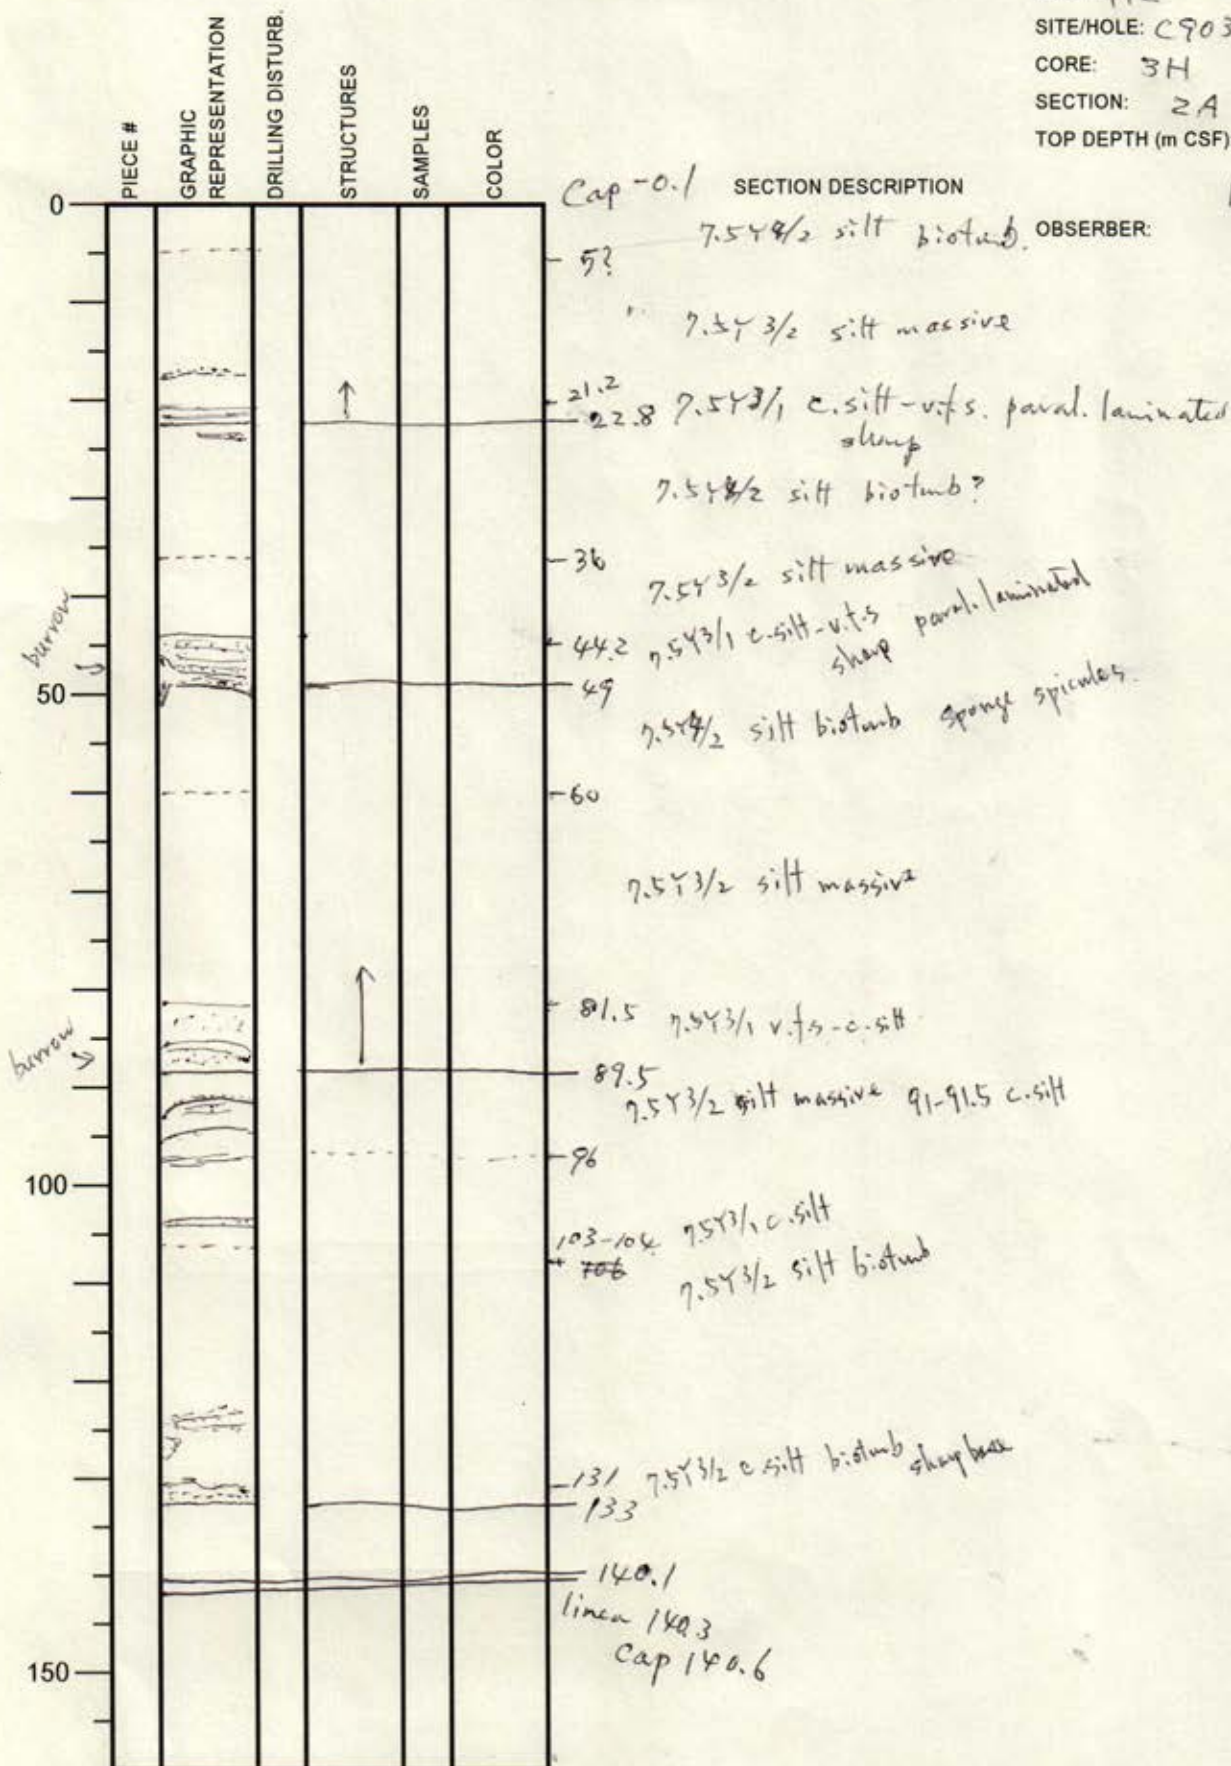 SITE/HOLE: C903
CORE: 3H
SECTION: 2A
TOP DEPTH (m CSF)
PIECE #
GRAPHIC REPRESENTATION
DRILLING DISTURB.
STRUCTURES
SAMPLES
COLOR
Cap -0.1 SECTION DESCRIPTION
OBSERBER:
0
7.5Y4/2 silt bioturb.
5?
7.5Y 3/2 silt massive
21.2
22.8 7.5Y3/1 c.silt-v.f.s. paral. laminated
sharp
7.5Y4/2 silt bioturb?
36
7.5Y 3/2 silt massive
burrow
44.2 7.5Y3/1 c.silt-v.f.s paral. laminated
sharp
50
49
7.5Y4/2 silt bioturb sponge spicules.
60
7.5Y 3/2 silt massive
81.5 7.5Y3/1 v.f.s-c.silt
burrow
89.5
7.5Y3/2 silt massive 91-91.5 c.silt
96
100
103-104 7.5Y3/1 c.silt
106
7.5Y3/2 silt bioturb
131 7.5Y3/2 c.silt bioturb sharp base
133
140.1
liner 140.3
Cap 140.6
150